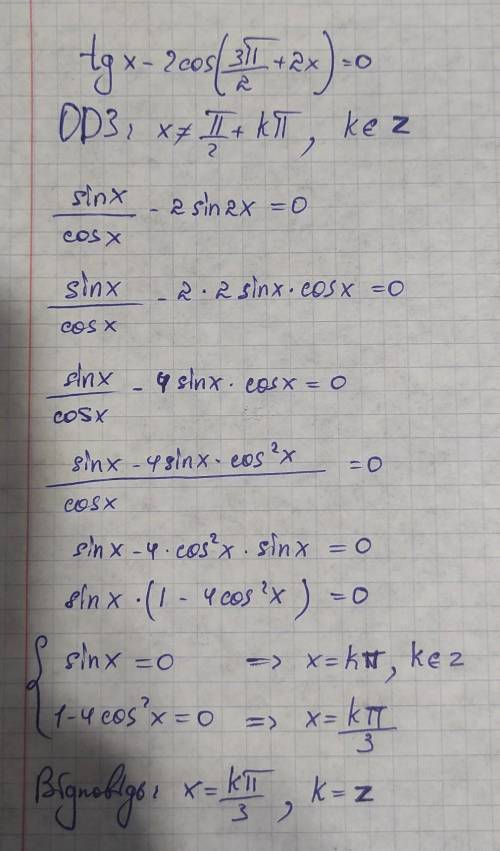 tg x - 2cos(3π/2 + 2x) = 0
ОДЗ: x ≠ π/2 + kπ, k ∈ z
sinx/cosx - 2 sin2x = 0
sinx/cosx - 2 · 2 sinx · cosx = 0
sinx/cosx - 4 sinx · cosx = 0
(sinx - 4 sinx · cos²x)/cosx = 0
sinx - 4 · cos²x · sinx = 0
sinx · (1 - 4cos²x) = 0
{ sinx = 0 => x = kπ, k ∈ z
1 - 4cos²x = 0 => x = kπ/3
Відповідь: x = kπ/3, k = z